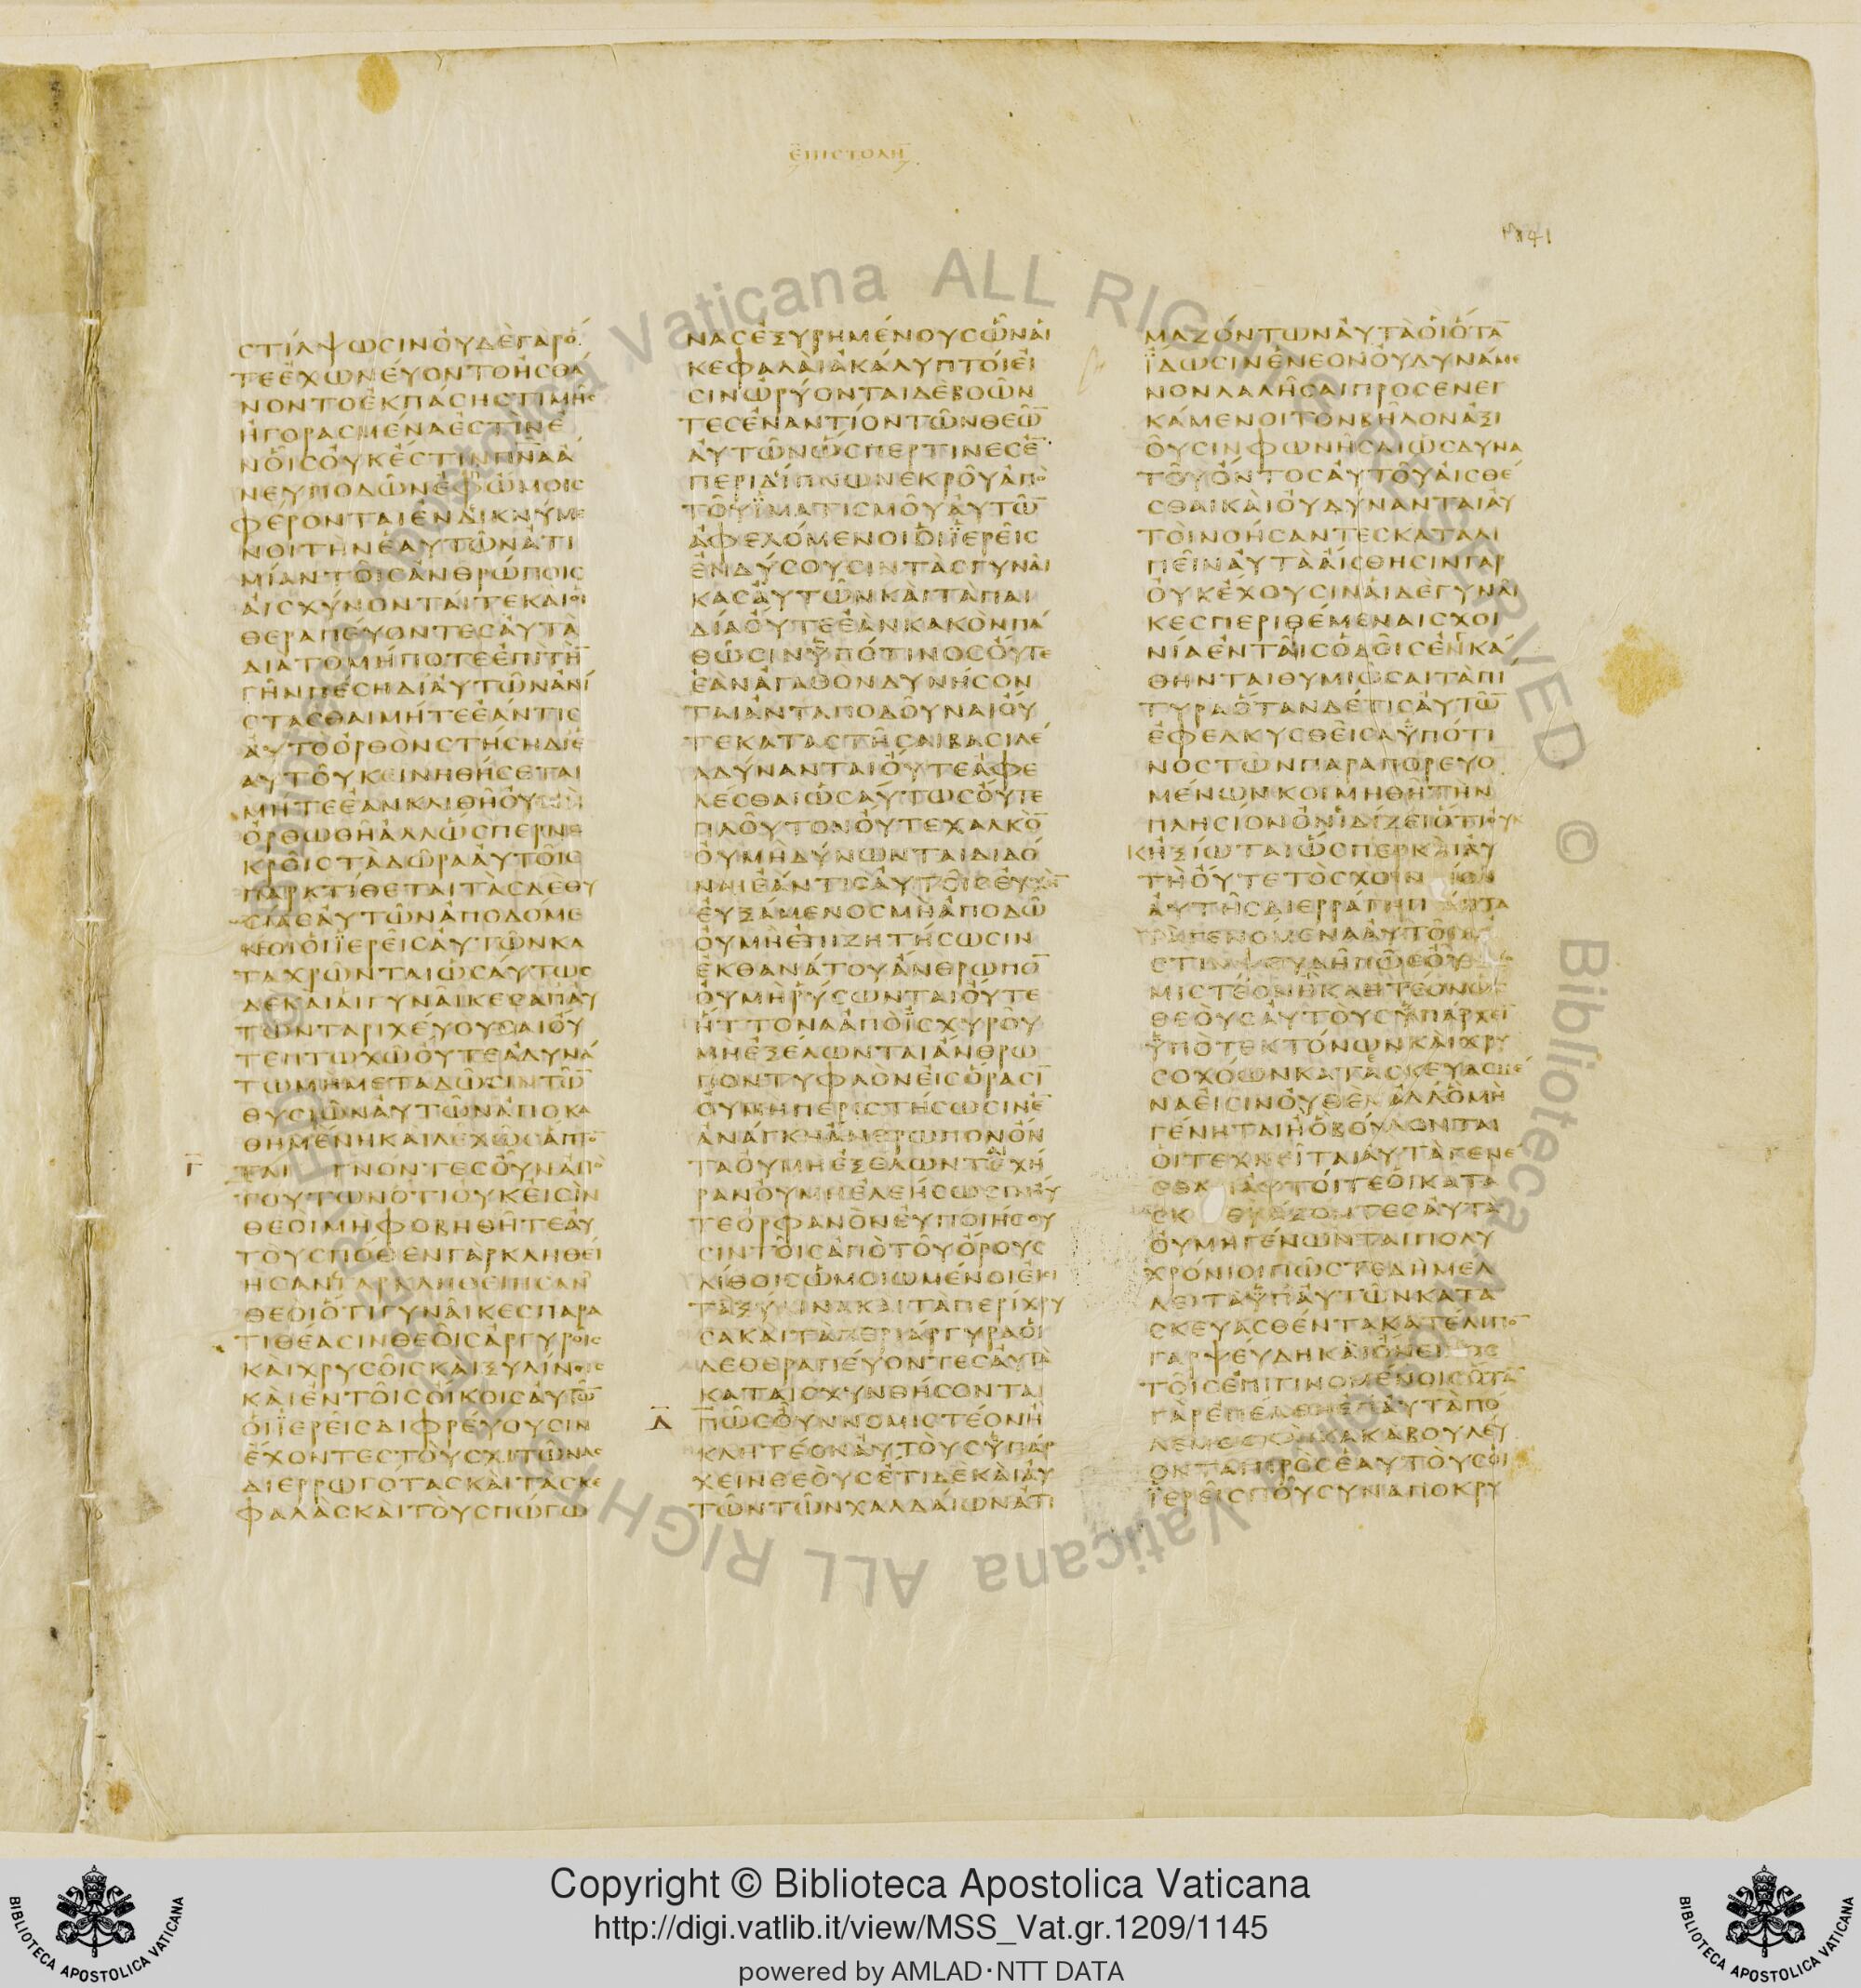 ἘΠΙΣΤΟΛΗ
1141
ϹΤΙΛΨΩϹΙΝΟΥΔΕΓΑΡΟ
ΤΕΕΧΩΝΕΥΟΝΤΟΗϹΘΑ
ΝΟΝΤΟΕΚΠΑϹΗϹΤΙΜΗϹ
ΗΓΟΡΑϹΜΕΝΑΕϹΤΙΝΕ
ΝΟΙϹΟΥΚΕϹΤΙΝΠΝΑΑ
ΝΕΥΠΟΔΩΝΕΦΩΜΟΙϹ
ΦΕΡΟΝΤΑΙΕΝΔΙΚΝΥΜΕ
ΝΟΙΤΗΝΕΑΥΤΩΝΑΤΙ
ΜΙΑΝΤΟΙϹΑΝΘΡΩΠΟΙϹ
ΑΙϹΧΥΝΟΝΤΑΙΤΕΚΑΙΟΙ
ΘΕΡΑΠΕΥΟΝΤΕϹΑΥΤΑ
ΔΙΑΤΟΜΗΠΟΤΕΕΠΙΤΗ̅
ΓΗΝΠΕϹΗΔΙΑΥΤΩΝΑΝΙ
ϹΤΑϹΘΑΙΜΗΤΕΕΑΝΤΙϹ
ΑΥΤΟΟΡΘΟΝϹΤΗϹΗΔΙΕ
ΑΥΤΟΥΚΕΙΝΗΘΗϹΕΤΑΙ
ΜΗΤΕΕΑΝΚΛΙΘΗΟΥΜΗ
ΟΡΘΩΘΗΑΛΛΩϹΠΕΡΝΕ
ΚΡΟΙϹΤΑΔΩΡΑΑΥΤΟΙϹ
ΠΑΡΑΤΙΘΕΤΑΙΤΑϹΔΕΘΥ
ϹΙΑϹΑΥΤΩΝΑΠΟΔΟΜΕ
ΝΟΙΟΙΪΕΡΕΙϹΑΥΤΩΝΚΑ
ΤΑΧΡΩΝΤΑΙΩϹΑΥΤΩϹ
ΔΕΚΑΙΑΙΓΥΝΑΙΚΕϹΑΠΑΥ
ΤΩΝΤΑΡΙΧΕΥΟΥϹΑΙΟΥ
ΤΕΠΤΩΧΩΟΥΤΕΑΔΥΝΑ
ΤΩΜΗΜΕΤΑΔΩϹΙΝΤΩ̅
ΘΥϹΙΩΝΑΥΤΩΝΑΠΟΚΑ
ΘΗΜΕΝΗΚΑΙΛΕΧΩϹΑΠΤΟ̅
Γ̅ ΤΑΙ ΓΝΟΝΤΕϹΟΥΝΑΠΟ
ΤΟΥΤΩΝΟΤΙΟΥΚΕΙϹΙΝ
ΘΕΟΙΜΗΦΟΒΗΘΗΤΕΑΥ
ΤΟΥϹΠΟΘΕΝΓΑΡΚΛΗΘΕΙ
ΗϹΑΝΓΑΡΚΛΗΘΕΙΗϹΑΝ
ΘΕΟΙΟΤΙΓΥΝΑΙΚΕϹΠΑΡΑ
ΤΙΘΕΑϹΙΝΘΕΟΙϹΑΡΓΥΡΟΙϹ
ΚΑΙΧΡΥϹΟΙϹΚΑΙΞΥΛΙΝΟΙϹ
ΚΑΙΕΝΤΟΙϹΟΙΚΟΙϹΑΥΤΩ̅
ΟΙΪΕΡΕΙϹΔΙΦΡΕΥΟΥϹΙΝ
ΕΧΟΝΤΕϹΤΟΥϹΧΙΤΩΝΑϹ
ΔΙΕΡΡΩΓΟΤΑϹΚΑΙΤΑϹΚΕ
ΦΑΛΑϹΚΑΙΤΟΥϹΠΩΓΩ
ΝΑϹΕΞΥΡΗΜΕΝΟΥϹΩΝΑΙ
ΚΕΦΑΛΑΙΑΚΑΛΥΠΤΟΙΕΙ
ϹΙΝΩΡΥΟΝΤΑΙΔΕΒΟΩΝ
ΤΕϹΕΝΑΝΤΙΟΝΤΩΝΘΕΩ̅
ΑΥΤΩΝΩϹΠΕΡΤΙΝΕϹΕ̅
ΠΕΡΙΔΙΠΝΩΝΕΚΡΟΥΑΠΟ
ΤΟΥΪΜΑΤΙϹΜΟΥΑΥΤΩ̅
ΑΦΕΛΟΜΕΝΟΙΟΙΪΕΡΕΙϹ
ΕΝΔΥϹΟΥϹΙΝΤΑϹΓΥΝΑΙ
ΚΑϹΑΥΤΩΝΚΑΙΤΑΠΑΙ
ΔΙΑΟΥΤΕΕΑΝΚΑΚΟΝΠΑ
ΘΩϹΙΝΫΠΟΤΙΝΟϹΟΥΤΕ
ΕΑΝΑΓΑΘΟΝΔΥΝΗϹΟΝ
ΤΑΙΑΝΤΑΠΟΔΟΥΝΑΙΟΥ
ΤΕΚΑΤΑϹΤΗϹΑΙΒΑϹΙΛΕ
ΑΔΥΝΑΝΤΑΙΟΥΤΕΑΦΕ
ΛΕϹΘΑΙΩϹΑΥΤΩϹΟΥΤΕ
ΠΛΟΥΤΟΝΟΥΤΕΧΑΛΚΟ̅
ΟΥΜΗΔΥΝΩΝΤΑΙΔΙΔΟ
ΝΑΙΕΑΝΤΙϹΑΥΤΟΙϹΕΥΧΗ̅
ΕΥΞΑΜΕΝΟϹΜΗΑΠΟΔΩ
ΟΥΜΗΕΠΙΖΗΤΗϹΩϹΙΝ
ΕΚΘΑΝΑΤΟΥΑΝΘΡΩΠΟ̅
ΟΥΜΗΡΥϹΩΝΤΑΙΟΥΤΕ
ΗΤΤΟΝΑΑΠΟΪϹΧΥΡΟΥ
ΜΗΕΞΕΛΩΝΤΑΙΑΝΘΡΩ
ΠΟΝΤΥΦΛΟΝΕΙϹΟΡΑϹΙ̅
ΟΥΜΗΠΕΡΙϹΤΗϹΩϹΙΝΕ̅
ΑΝΑΓΚΗΑΝΘΡΩΠΟΝΟΝ
ΤΑΟΥΜΗΕΞΕΛΩΝΤΑΙΧΗ
ΡΑΝΟΥΜΗΕΛΕΗϹΩϹΙΝΟΥ
ΤΕΟΡΦΑΝΟΝΕΥΠΟΙΗϹΟΥ
ϹΙΝΤΟΙϹΑΠΟΤΟΥΟΡΟΥϹ
ΛΙΘΟΙϹΩΜΟΙΩΜΕΝΟΙΕΙϹΙ
ΤΑΞΥΛΙΝΑΚΑΙΤΑΠΕΡΙΧΡΥ
ϹΑΚΑΙΤΑΠΕΡΙΑΡΓΥΡΑΟΙ
ΔΕΘΕΡΑΠΕΥΟΝΤΕϹΑΥΤΑ
ΚΑΤΑΙϹΧΥΝΘΗϹΟΝΤΑΙ
Δ̅ ΠΩϹΟΥΝΝΟΜΙϹΤΕΟΝΗ
ΚΛΗΤΕΟΝΑΥΤΟΥϹΫΠΑΡ
ΧΕΙΝΘΕΟΥϹΕΤΙΔΕΚΑΙΑΥ
ΤΩΝΤΩΝΧΑΛΔΑΙΩΝΑΤΙ
ΜΑΖΟΝΤΩΝΑΥΤΑΟΙΟΤΑ̅
ΪΔΩϹΙΝΕΝΕΟΝΟΥΔΥΝΑΜΕ
ΝΟΝΛΑΛΗϹΑΙΠΡΟϹΕΝΕΓ
ΚΑΜΕΝΟΙΤΟΝΒΗΛΟΝΑΞΙ
ΟΥϹΙΝΦΩΝΗϹΑΙΩϹΔΥΝΑ
ΤΟΥΟΝΤΟϹΑΥΤΟΥΑΙϹΘΕ
ϹΘΑΙΚΑΙΟΥΔΥΝΑΝΤΑΙΑΥ
ΤΟΙΝΟΗϹΑΝΤΕϹΚΑΤΑΛΙ
ΠΕΙΝΑΥΤΑΑΙϹΘΗϹΙΝΓΑΡ
ΟΥΚΕΧΟΥϹΙΝΑΙΔΕΓΥΝΑΙ
ΚΕϹΠΕΡΙΘΕΜΕΝΑΙϹΧΟΙ
ΝΙΑΕΝΤΑΙϹΟΔΟΙϹΕΝΚΑ
ΘΗΝΤΑΙΘΥΜΙΩϹΑΙΤΑΠΙ
ΤΥΡΑΟΤΑΝΔΕΤΙϹΑΥΤΩ̅
ΕΦΕΛΚΥϹΘΕΙϹΑΫΠΟΤΙ
ΝΟϹΤΩΝΠΑΡΑΠΟΡΕΥΟ
ΜΕΝΩΝΚΟΙΜΗΘΗΤΗΝ
ΠΛΗϹΙΟΝΟΝΙΔΙΖΕΙΟΤΙΟΥΚ
ΗΞΙΩΤΑΙΩϹΠΕΡΚΑΙΑΥ
ΤΗΟΥΤΕΤΟϹΧΟΙΝΙΟΝ
ΑΥΤΗϹΔΙΕΡΡΑΓΗΠΑΝΤΑ
ΤΑΓΕΝΟΜΕΝΑΑΥΤΟΙϹΕ
ϹΤΙΝΨΕΥΔΗΠΩϹΟΥΝ
ΜΙϹΤΕΟΝΗΚΛΗΤΕΟΝΩϹ
ΘΕΟΥϹΑΥΤΟΥϹΫΠΑΡΧΕΙ̅
ΫΠΟΤΕΚΤΟΝΩΝΚΑΙΧΡΥ
ϹΟΧΟΩΝΚΑΤΑϹΚΕΥΑϹΜΕ
ΝΑΕΙϹΙΝΟΥΘΕΝΑΛΛΟΜΗ
ΓΕΝΗΤΑΙΗΟΒΟΥΛΟΝΤΑΙ
ΟΙΤΕΧΝΕΙΤΑΙΑΥΤΑΓΕΝΕ
ϹΘΑΙΑΥΤΟΙΤΕΟΙΚΑΤΑ
ϹΚΕΥΑΖΟΝΤΕϹΑΥΤΑ
ΟΥΜΗΓΕΝΩΝΤΑΙΠΟΛΥ
ΧΡΟΝΙΟΙΠΩϹΤΕΔΗΜΕΛ
ΛΕΙΤΑΫΠΑΥΤΩΝΚΑΤΑ
ϹΚΕΥΑϹΘΕΝΤΑΚΑΤΕΛΙΠΟ̅
ΓΑΡΨΕΥΔΗΚΑΙΟΝΕΙΔΟϹ
ΤΟΙϹΕΠΙΓΙΝΟΜΕΝΟΙϹΟΤΑ̅
ΓΑΡΕΠΕΛΘΗΕΠΑΥΤΑΠΟ
ΛΕΜΟϹΚΑΙΚΑΚΑΒΟΥΛΕΥ
ΟΝΤΑΙΠΡΟϹΕΑΥΤΟΥϹΟΙ
ΪΕΡΕΙϹΠΟΥϹΥΝΑΠΟΚΡΥ
Vaticana ALL RIGHTS RESERVED © Biblioteca Apostolica Vaticana ALL RIGHTS
Copyright © Biblioteca Apostolica Vaticana
http://digi.vatlib.it/view/MSS_Vat.gr.1209/1145
powered by AMLAD·NTT DATA
BIBLIOTECA APOSTOLICA VATICANA
BIBLIOTECA APOSTOLICA VATICANA